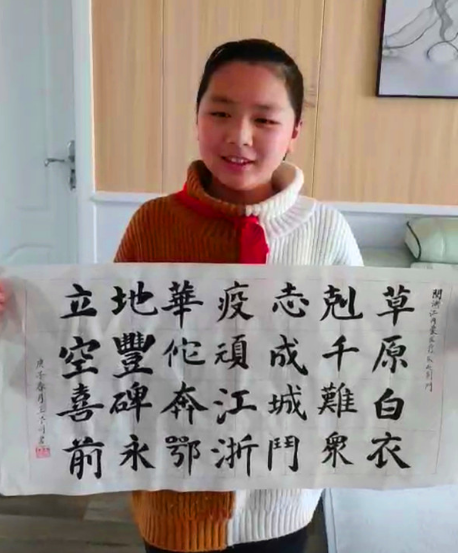 草原白衣
剋千難衆
志成城鬥
疫頑江浙
華佗奔鄂
地豐碑永
立空喜前
庚子春月